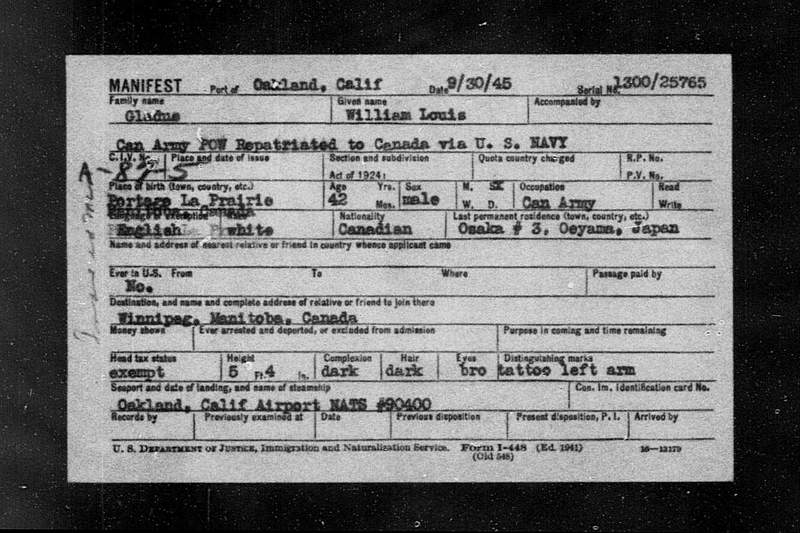 MANIFEST Port of Oakland, Calif Date 9/30/45 Serial No. 1300/25765
Family name Given name Accompanied by
Gladue William Louis
Can Army POW Repatriated to Canada via U. S. NAVY
C.I.V. No. Place and date of issue Section and subdivision Quota country charged R.P. No.
A-87-5 Act of 1924: P.V. No.
Place of birth (town, country, etc.) Age Yrs. Sex M. S. Occupation Read
Portage La Prairie 42 Mos. male W. D. Can Army Write
Manitoba, Canada
Language or exemption Nationality Last permanent residence (town, country, etc.)
English white Canadian Osaka # 3, Oeyama, Japan
Name and address of nearest relative or friend in country whence applicant came
Ever in U.S. From To Where Passage paid by
No.
Destination, and name and complete address of relative or friend to join there
Winnipeg, Manitoba, Canada
Money shown Ever arrested and deported, or excluded from admission Purpose in coming and time remaining
Head tax status Height Complexion Hair Eyes Distinguishing marks
exempt 5 Ft. 4 In. dark dark bro tattoo left arm
Seaport and date of landing, and name of steamship Con. Im. identification card No.
Oakland, Calif Airport NATS #90400
Records by Previously examined at Date Previous disposition Present disposition, P. I. Arrived by
U. S. DEPARTMENT OF JUSTICE, Immigration and Naturalization Service. Form I-448 (Ed. 1941) 16-13179
(Old 548)